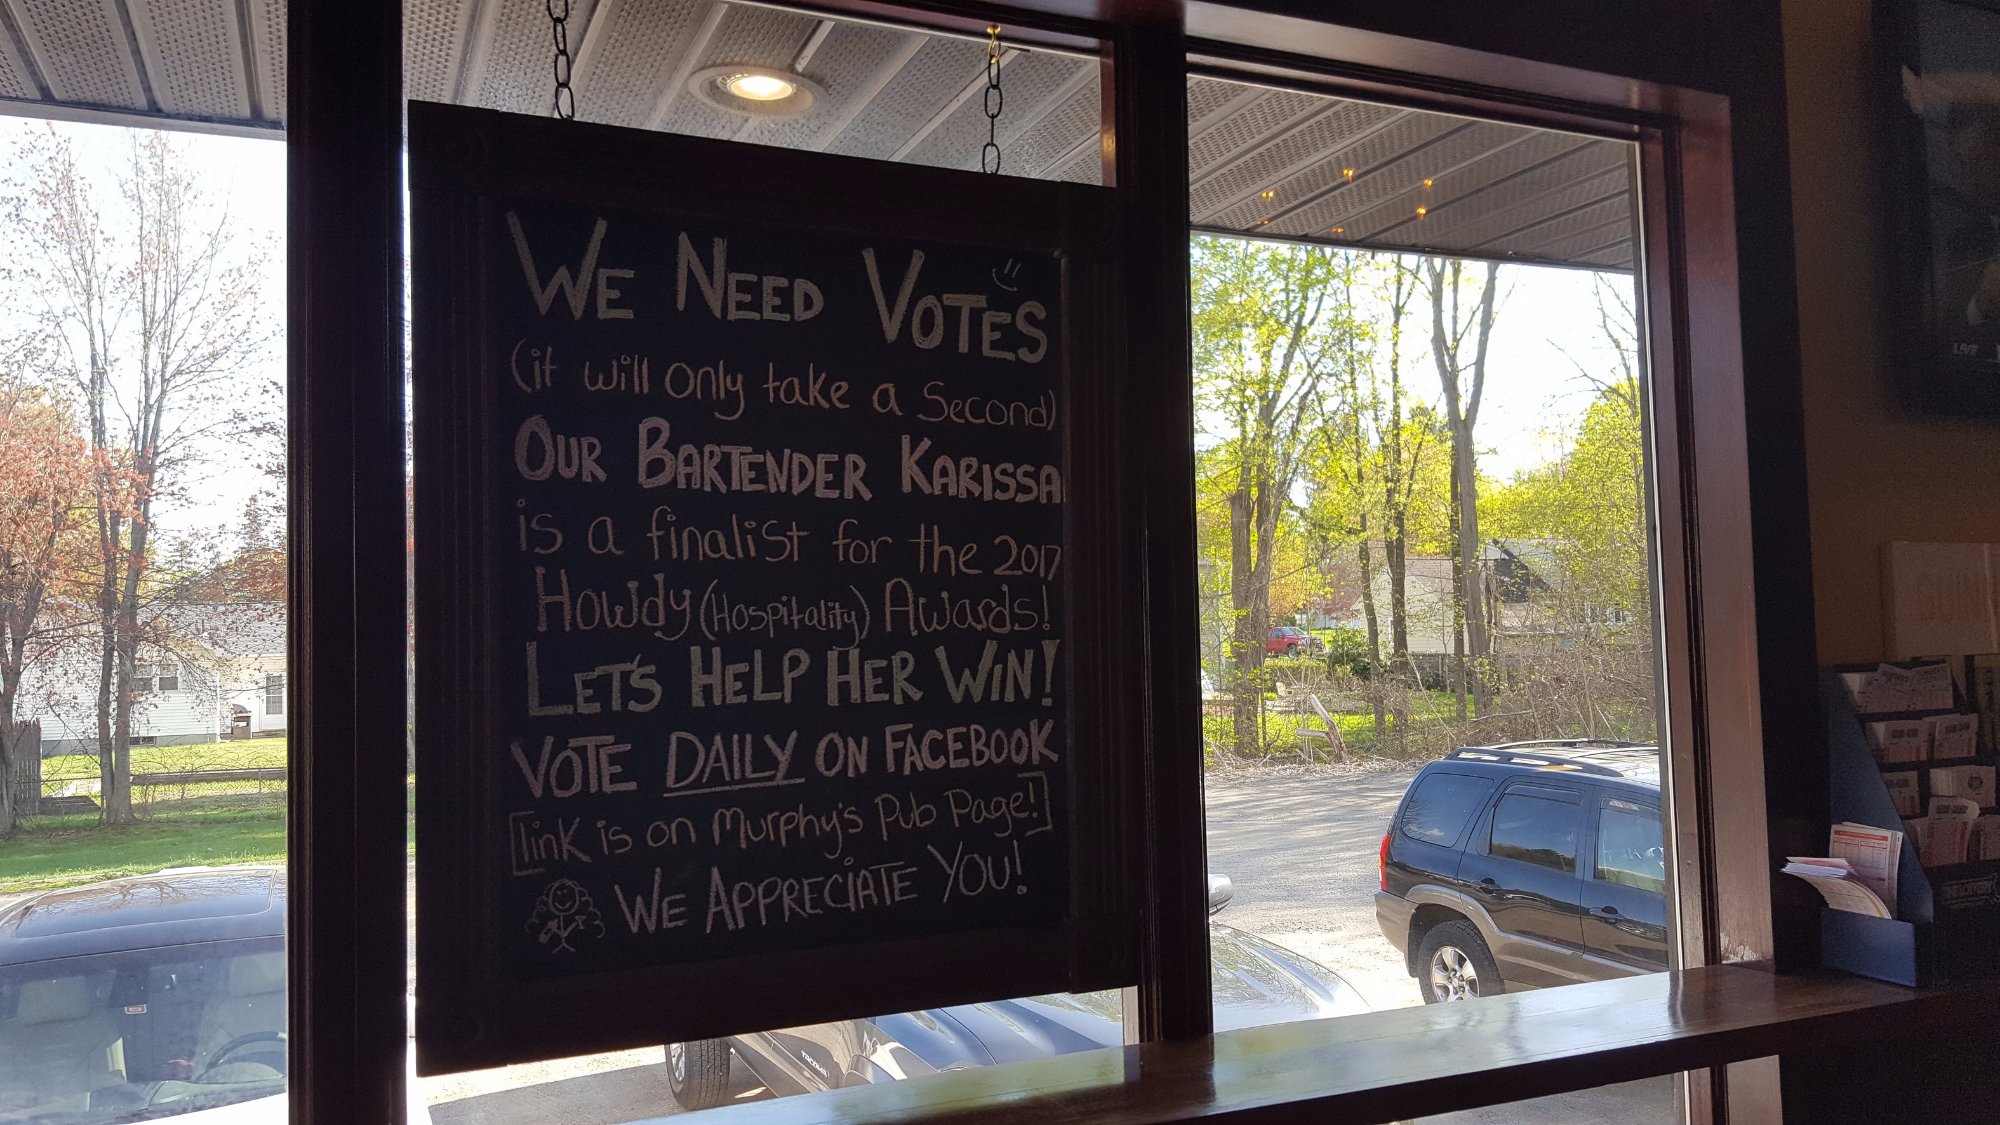 WE NEED VOTES
(it will only take a Second)
OUR BARTENDER KARISSA
is a finalist for the 2017
Howdy (Hospitality) Awards!
LET'S HELP HER WIN!
VOTE DAILY ON FACEBOOK
[link is on Murphy's Pub Page!]
WE APPRECIATE YOU!
LIVE
TACOMA